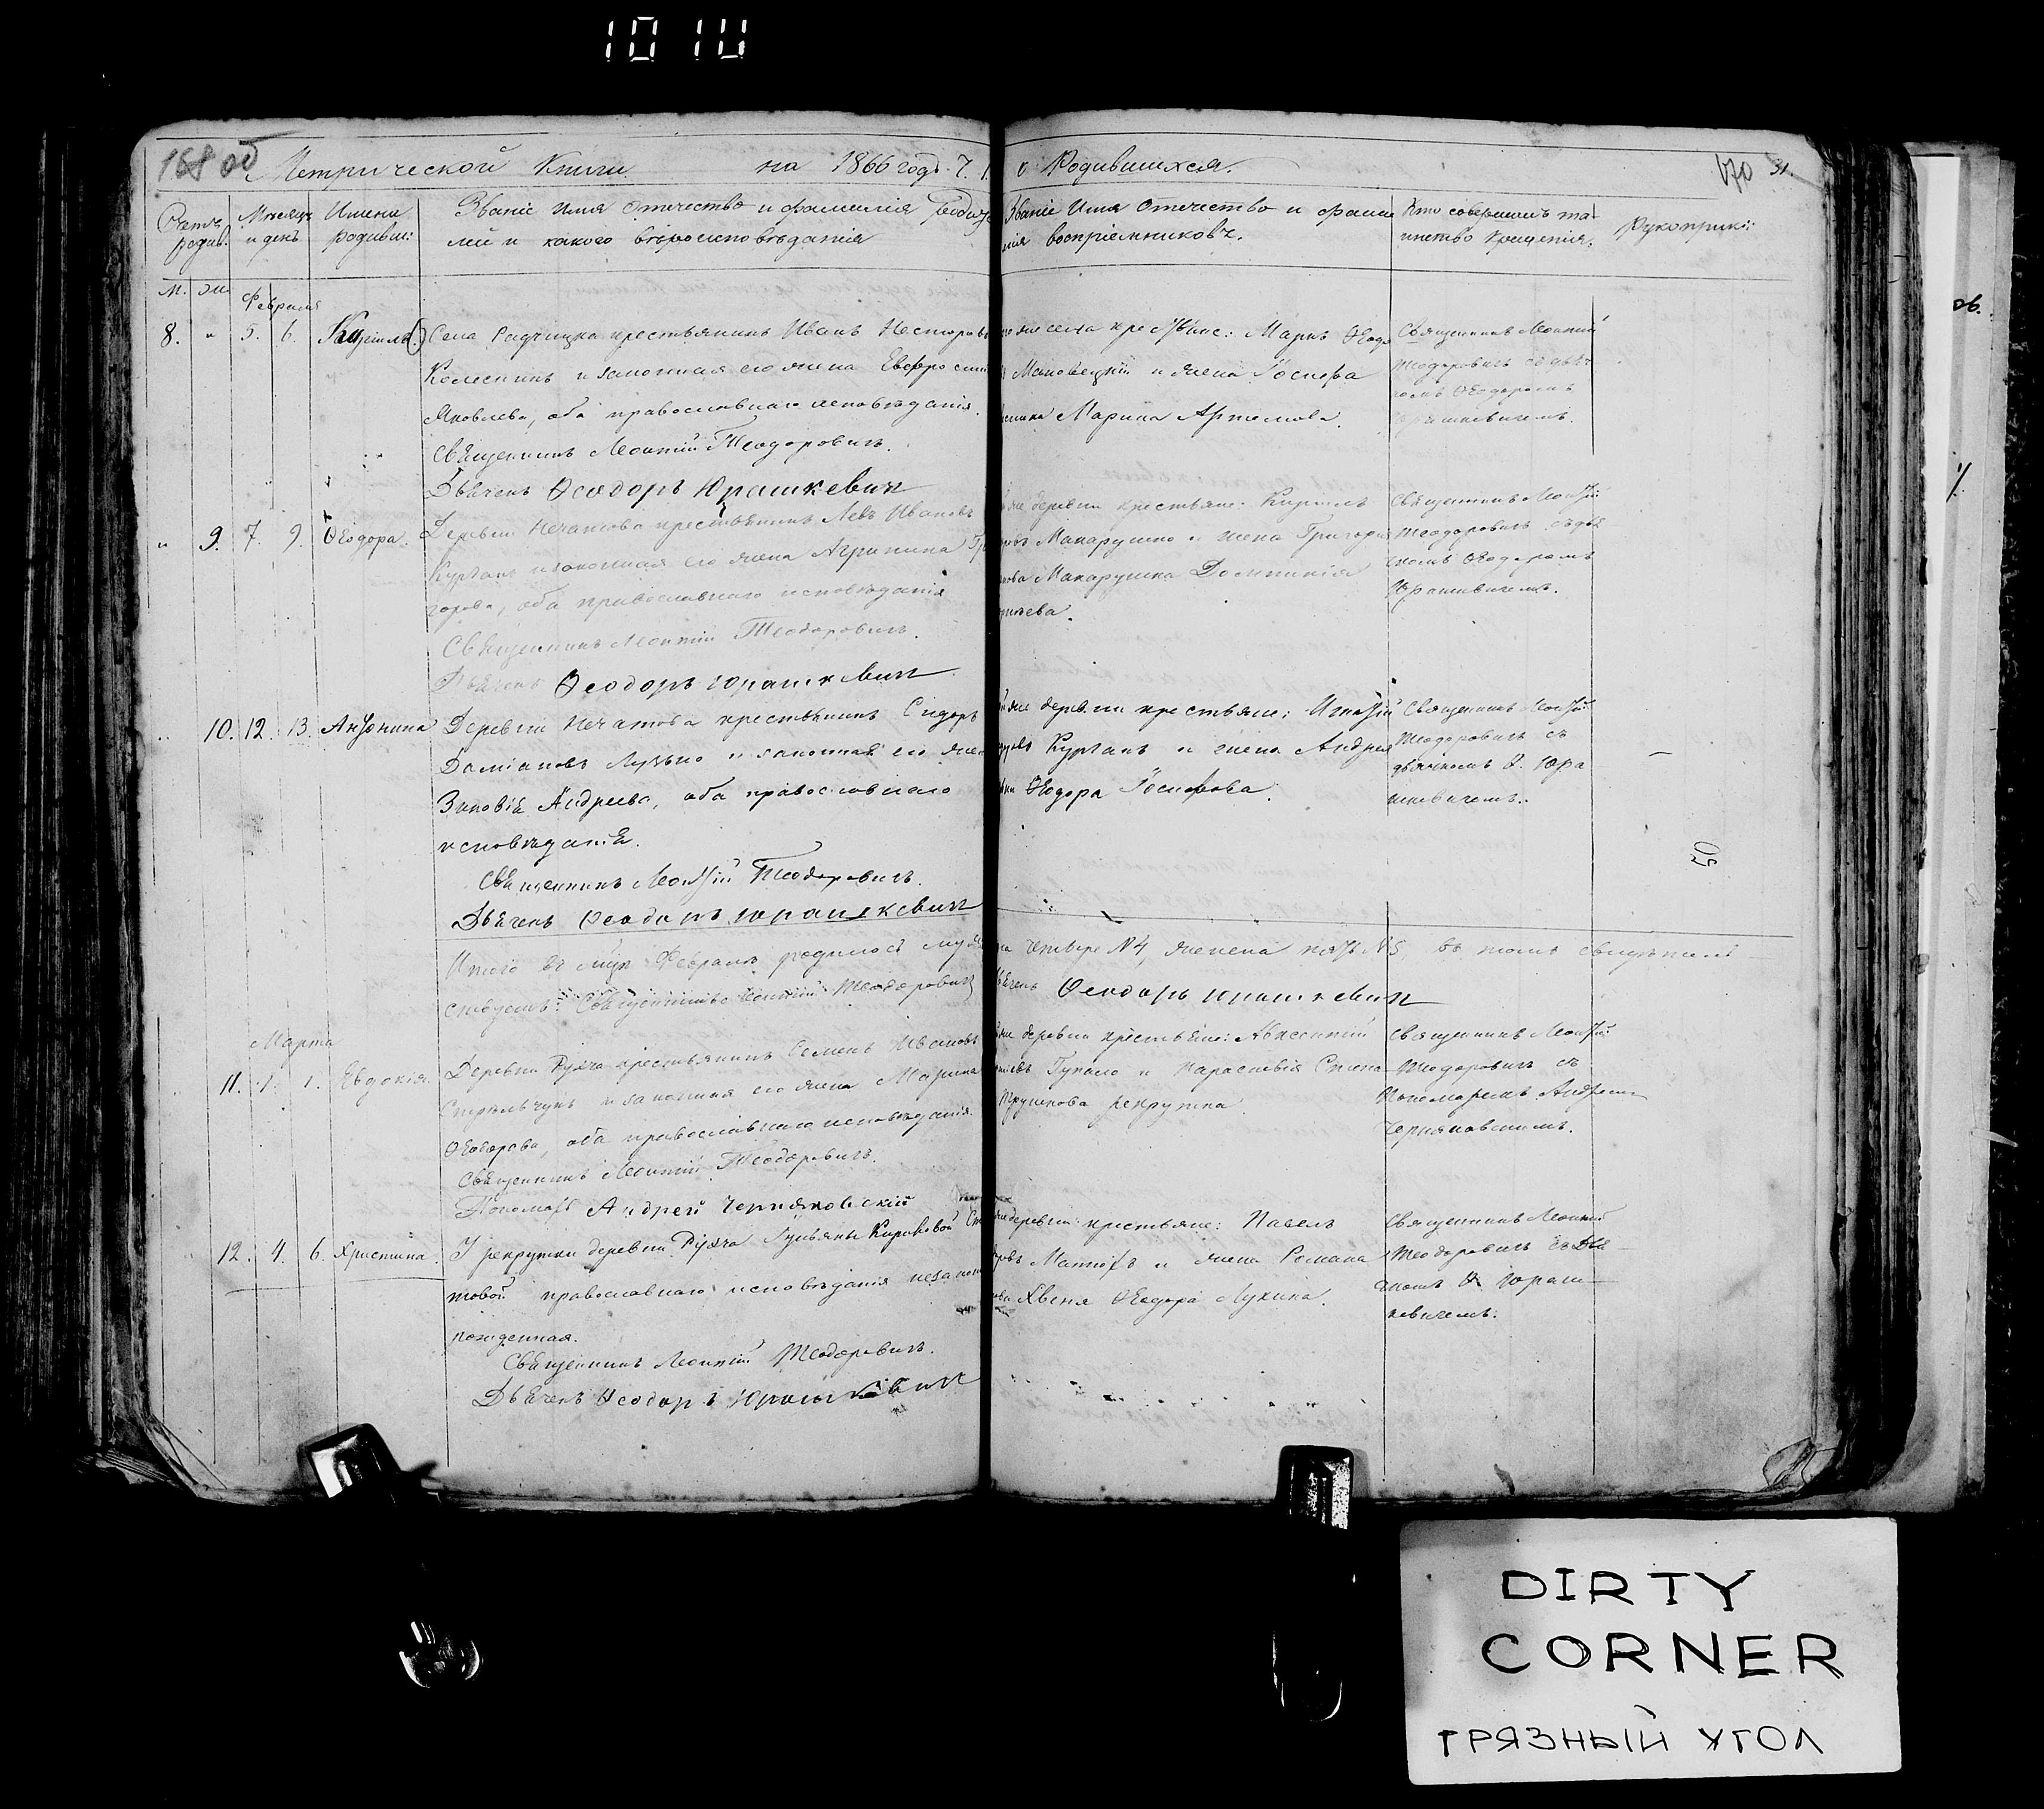 168 об
Метрической Книги на 1866 годъ. Ч. 1. о Родившихся.
170 31.
Счетъ родив: Мѣсяцъ и день Имена родивш:
Званіе Имя Отечество и фамилія Родите
лей и какого вѣроисповѣданія
Званіе Имя Отечество и фами
лія воспріемниковъ.
Кто совершилъ та
инство крещенія.
Рукоприк:
М. Ж.
Февраля
8. " 5. 6. Кириллъ
Села Радчицка крестьянинъ Иванъ Несторовъ
Колесникъ и законная его жена Евфросинія
Яковлева, оба православнаго исповѣданія.
Священникъ Леонтій Теодоровичъ.
Дьячекъ Ѳеодоръ Юрашкевичъ
же села крестьяне: Марко Ѳеодо
Маковецкій и жена Іосифа
Марина Артемова.
Священникъ Леонтій
Теодоровичъ съ дья
комъ Ѳеодоромъ
Юрашкевичемъ.
" 9. 7. 9. Ѳеодора.
Деревни Нечатова крестьянинъ Левъ Ивановъ
Курганъ и законная его жена Агрипина Гри
горова, оба православнаго исповѣданія
Священникъ Леонтій Теодоровичъ.
Дьячекъ Ѳеодоръ Юрашкевичъ
же деревни крестьяне: Кириллъ
Макарушко и жена Григорія
Макарушка Домникія
Священникъ Леонтій
Теодоровичъ съ дья
чкомъ Ѳеодоромъ
Юрашкевичемъ.
10. 12. 13. Антонина
Деревни Нечатова крестьянинъ Сидоръ
Даміановъ Лузько и законная его жена
Зиновія Андреева, оба православнаго
исповѣданія.
Священникъ Леонтій Теодоровичъ.
Дьячекъ Ѳеодоръ Юрашкевичъ
же деревни крестьяне: Игнатій
Курганъ и жена Андрея
Ѳеодора Іосифова.
Священникъ Леонтій
Теодоровичъ съ
дьячкомъ Ѳ. Юра
шкевичемъ.
50
Итого въ мцѣ Февралѣ родилось муж
четыре №4, женска пять №5, въ томъ свидѣтель
ствуемъ: Священникъ Леонтій Теодоровичъ
Дьячекъ Ѳеодоръ Юрашкевичъ
Марта
11. 1. 1. Евдокія
Деревни Рухча крестьянинъ Семенъ Ивановъ
Стрѣльчукъ и законная его жена Марина
Ѳеодорова, оба православнаго исповѣданія.
Священникъ Леонтій Теодоровичъ.
Пономарь Андрей Черняковскій
же деревни крестьяне: Авксентій
Гупало и Параскевія Степа
Трушкова рекрутка.
Священникъ Леонтій
Теодоровичъ съ
Пономаремъ Андреемъ
Черняковскимъ.
12. 4. 6. Христина.
У рекрутки деревни Рухча Ульяны Кириковой
товой православнаго исповѣданія незаконно
рожденная.
Священникъ Леонтій Теодоровичъ.
Дьячекъ Ѳеодоръ Юрашкевичъ
же деревни крестьяне: Павелъ
и жена Романа
Хвеня Ѳеодора Лукина.
Священникъ Леонтій
Теодоровичъ съ Дья
чкомъ Ѳ Юраш
кевичемъ.
DIRTY
CORNER
ГРЯЗНЫЙ УГОЛ